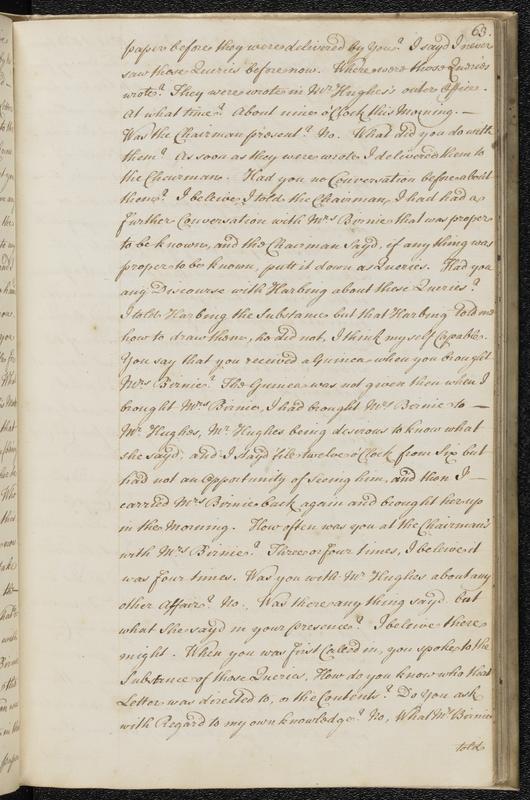 63.
paper before they were delivered by You? I sayd I never
saw those Queries before now. Where were those Queries
wrote? They were wrote in Mr. Hughes's outer Office.
At what time? About nine o'Clock this Morning. —
Was the Chairman present? No. What did you do with
them? As soon as they were wrote I delivered them to
the Chairman. Had you no Conversation before about
them? I beleive I told the Chairman, I had had a
further Conversation with Mrs Birnie that was proper
to be known, and the Chairman Sayd, if any thing was
proper to be known, putt it down as Queries. Had you
any Discourse with Harbeng about these Queries?
I told Harbeng the Substance but that Harbeng told me
how to draw them, he did not, I think my self Capable.
You say that you received a Guinea when you brought
Mrs Birnie? The Guinea was not given then when I
brought Mrs Birnie, I had brought Mrs Birnie to —
Mr Hughes, Mr Hughes being desirous to know what
she sayd, and I stayd till twelve o'Clock from Six but
had not an Opportunity of Seeing him, and then I —
carried Mrs Birnie back again and brought her up
in the Morning. How often was you at the Chairman's
with Mrs Birnie? Three or four times, I beleive it
was four times. Was you with Mr Hughes about any
other Affair? No. Was there any thing sayd but
what She sayd in your presence? I beleive there
might. When you was first Called in, you spoke to the
Substance of those Queries, How do you know who that
Letter was directed to, or the Contents? Do You ask
with Regard to my own knowledge? No, What Mrs Birnie
told